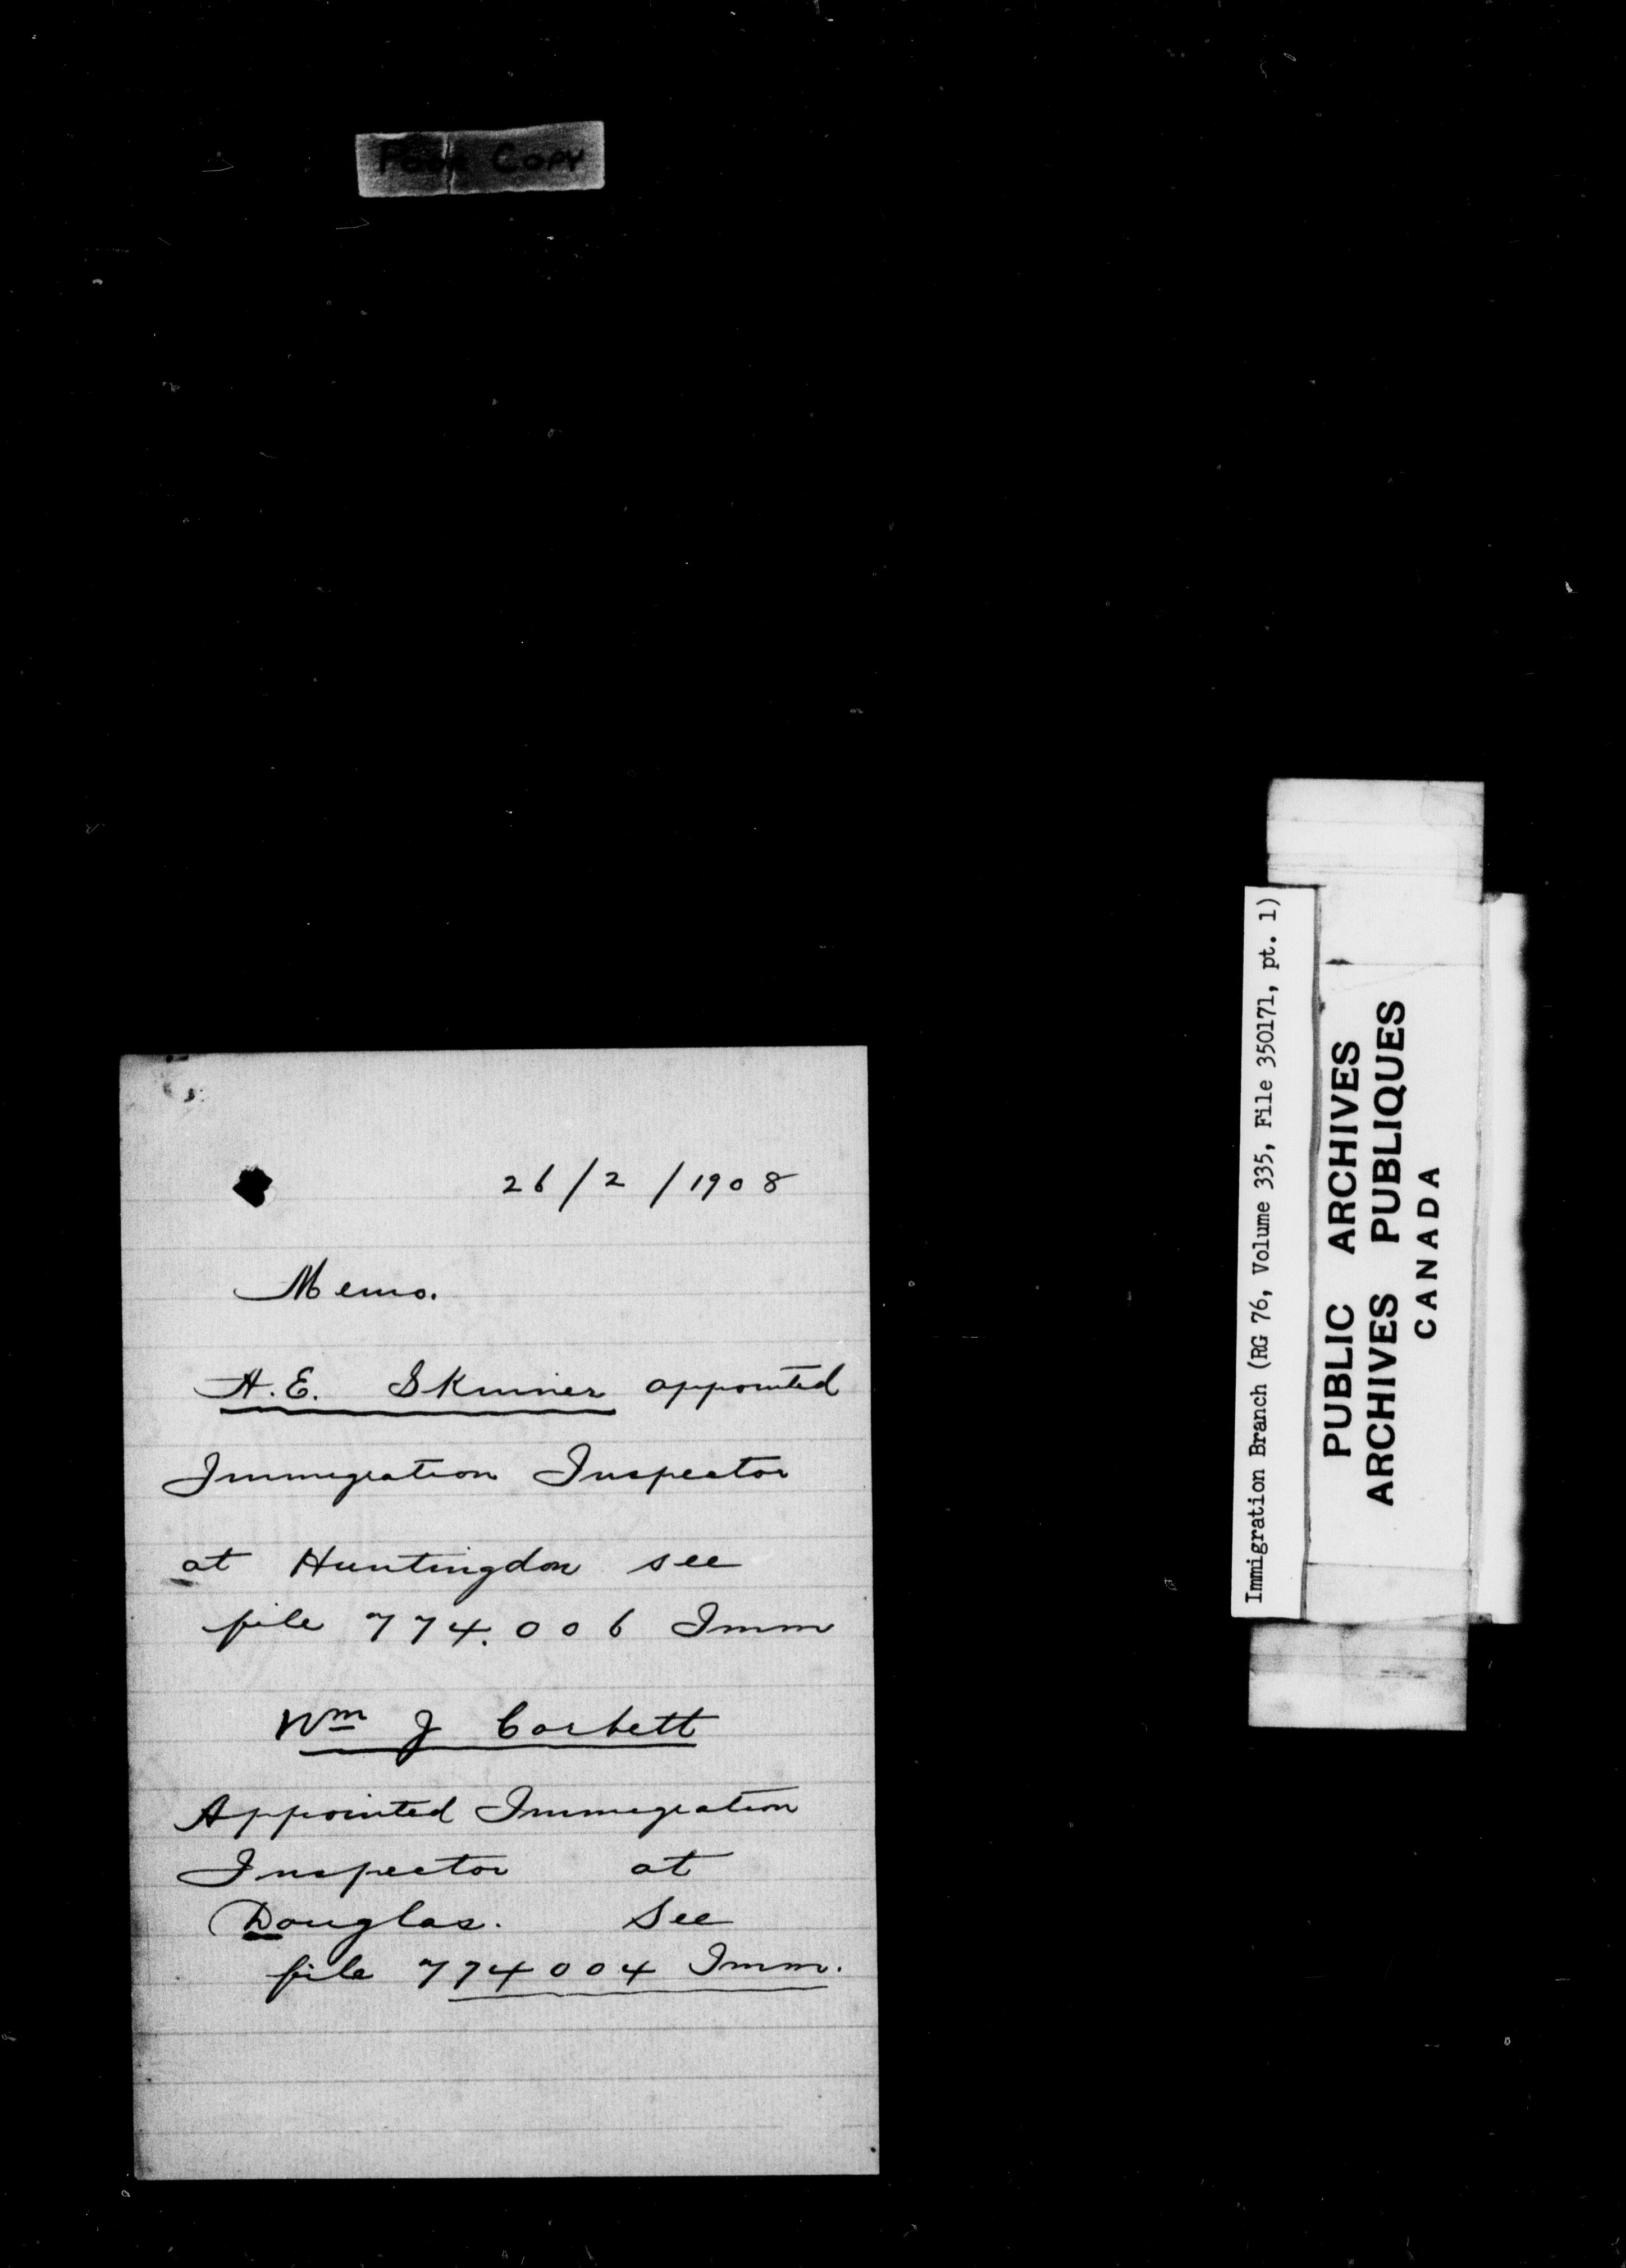 Poor Copy
26/2/1908
Memo.
A.E. Skinner appointed
Immigration Inspector
at Huntingdon see
file 774.006 Imm
Wm J Corbett
Appointed Immigration
Inspector at
Douglas. See
file 774004 Imm.
Immigration Branch (RG 76, Volume 335, File 350171, pt. 1)
PUBLIC ARCHIVES
ARCHIVES PUBLIQUES
CANADA